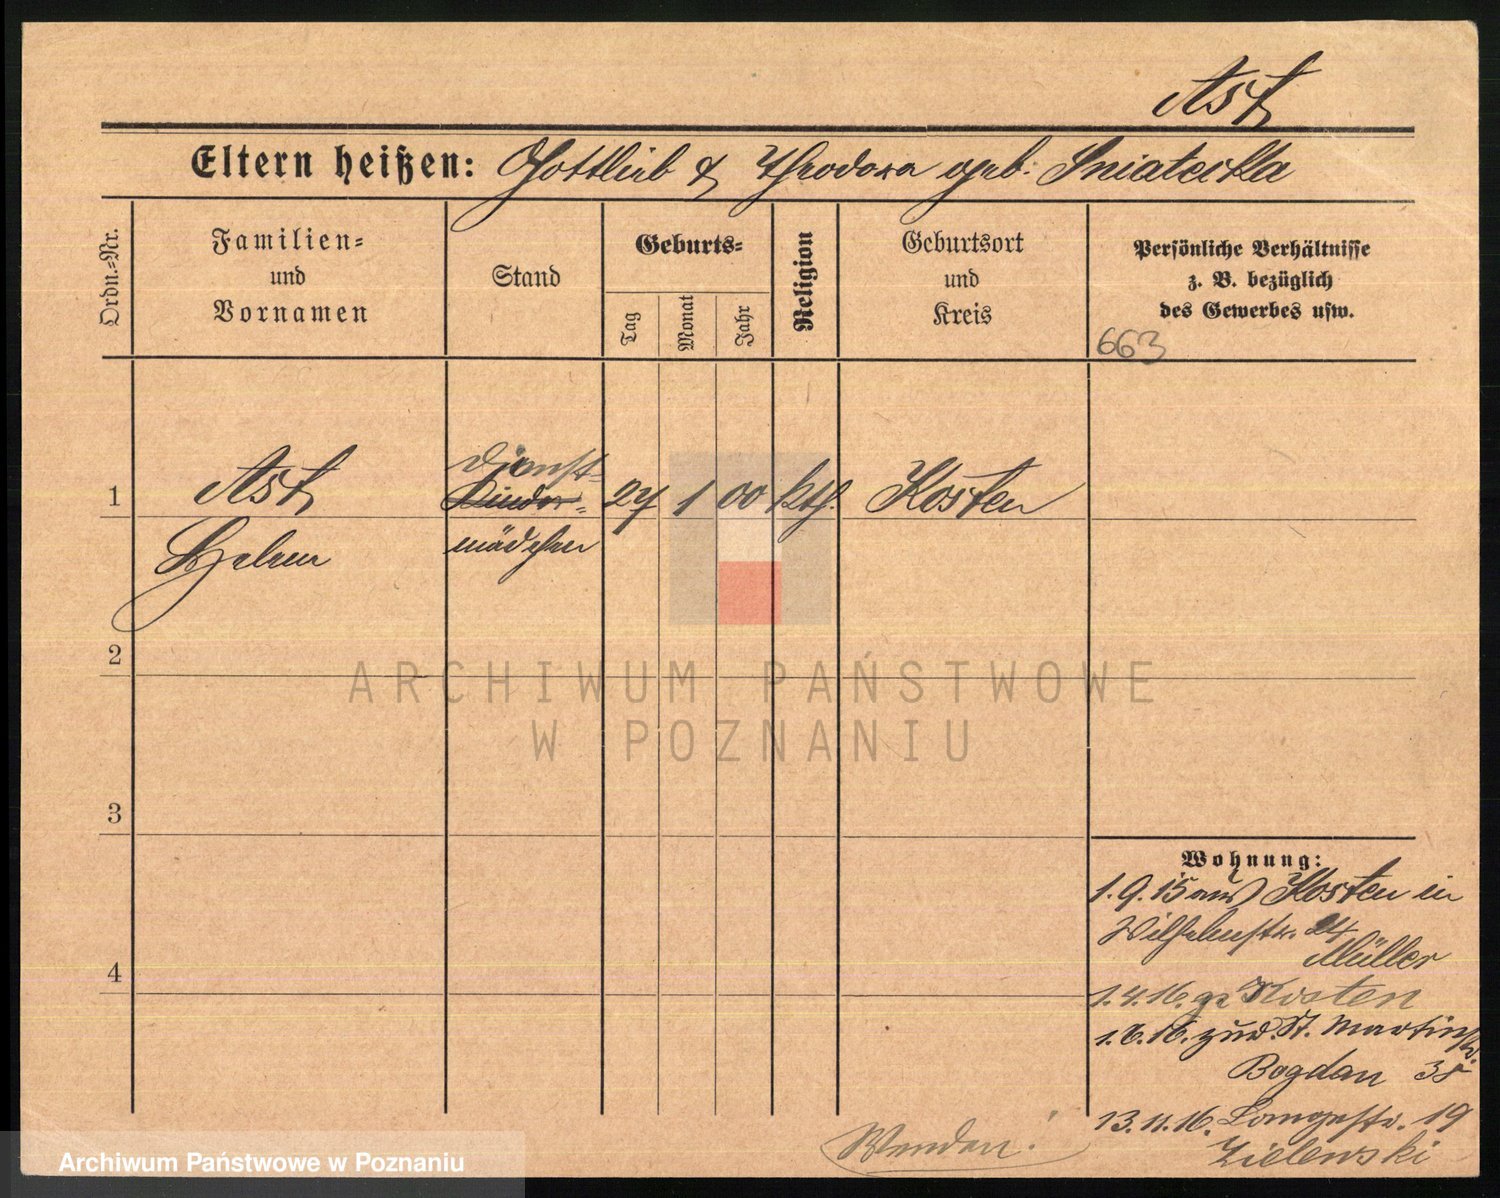 Ast
Eltern heißen: Gottlieb & Theodora geb. Sniatecka
Ordn.-Nr.
Familien-
und
Vornamen
Stand
Geburts-
Tag
Monat
Jahr
Religion
Geburtsort
und
Kreis
Persönliche Verhältnisse
z. B. bezüglich
des Gewerbes usw.
663
1
Ast
Helene
Dienst-
Kinder-
mädchen
27 1 00 kth. Kosten
2
3
4
Wohnung:
1.9.15 aus Kosten in
Wilhelmstr. 24
Müller
1.4.16. Kosten
1.6.16. zurd. St. Martinstr.
Bogdan 38
13.11.16. Langestr. 19
Zielewski
Wenden!
ARCHIWUM PAŃSTWOWE
W POZNANIU
Archiwum Państwowe w Poznaniu